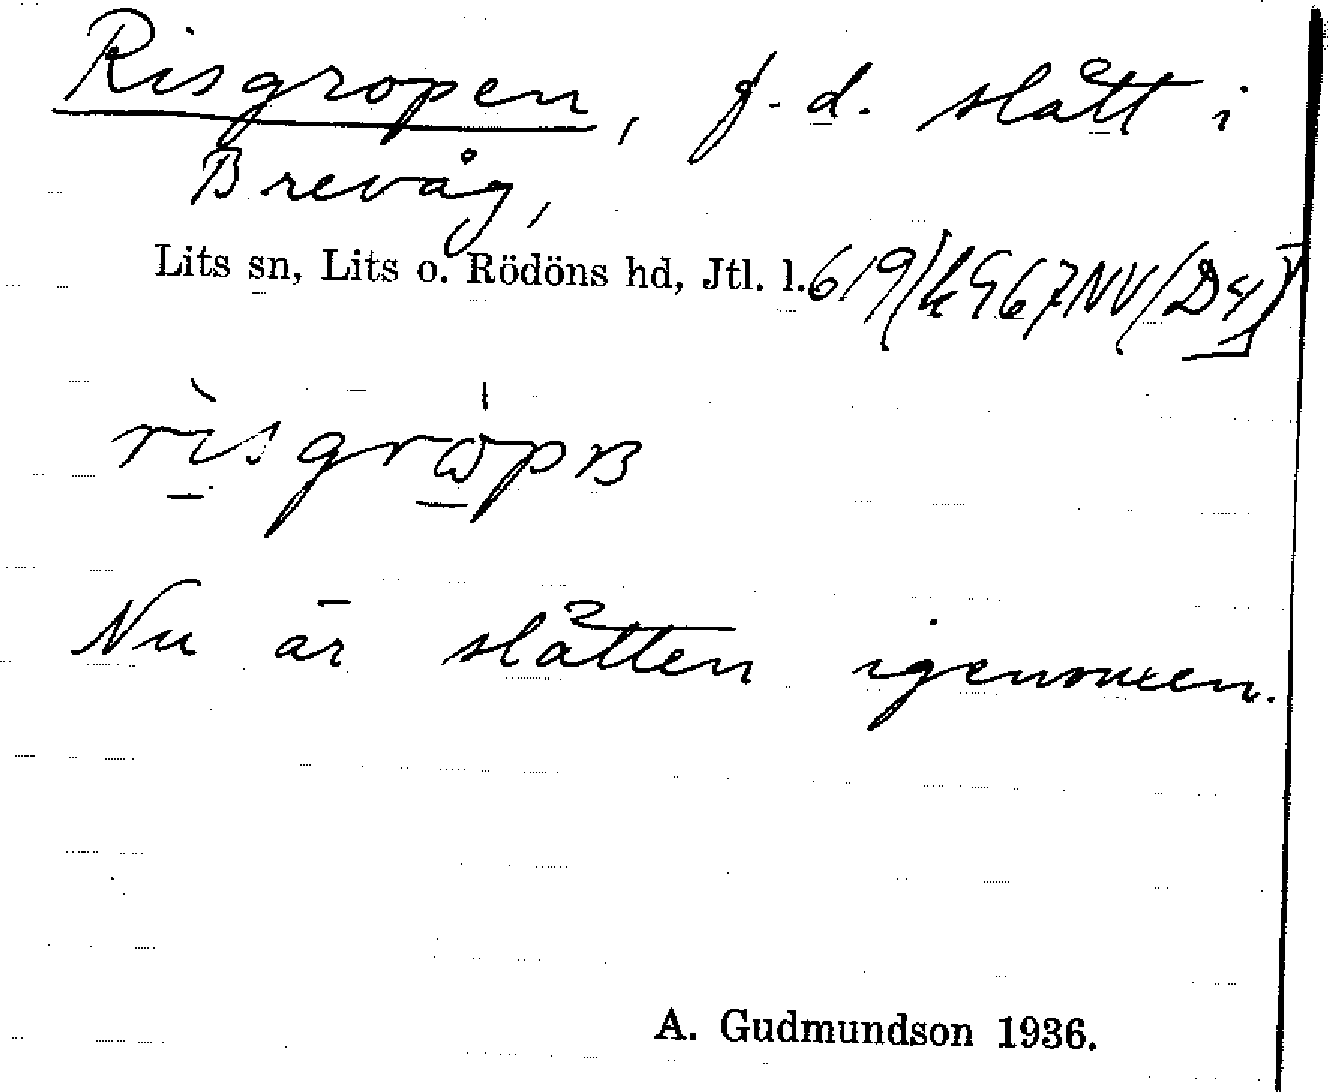 Risgropen, f.d. slått i
Brevåg,
Lits sn, Lits o. Rödöns hd, Jtl. l.
Nu är slåtten igenvuxen.
A. Gudmundson 1936.